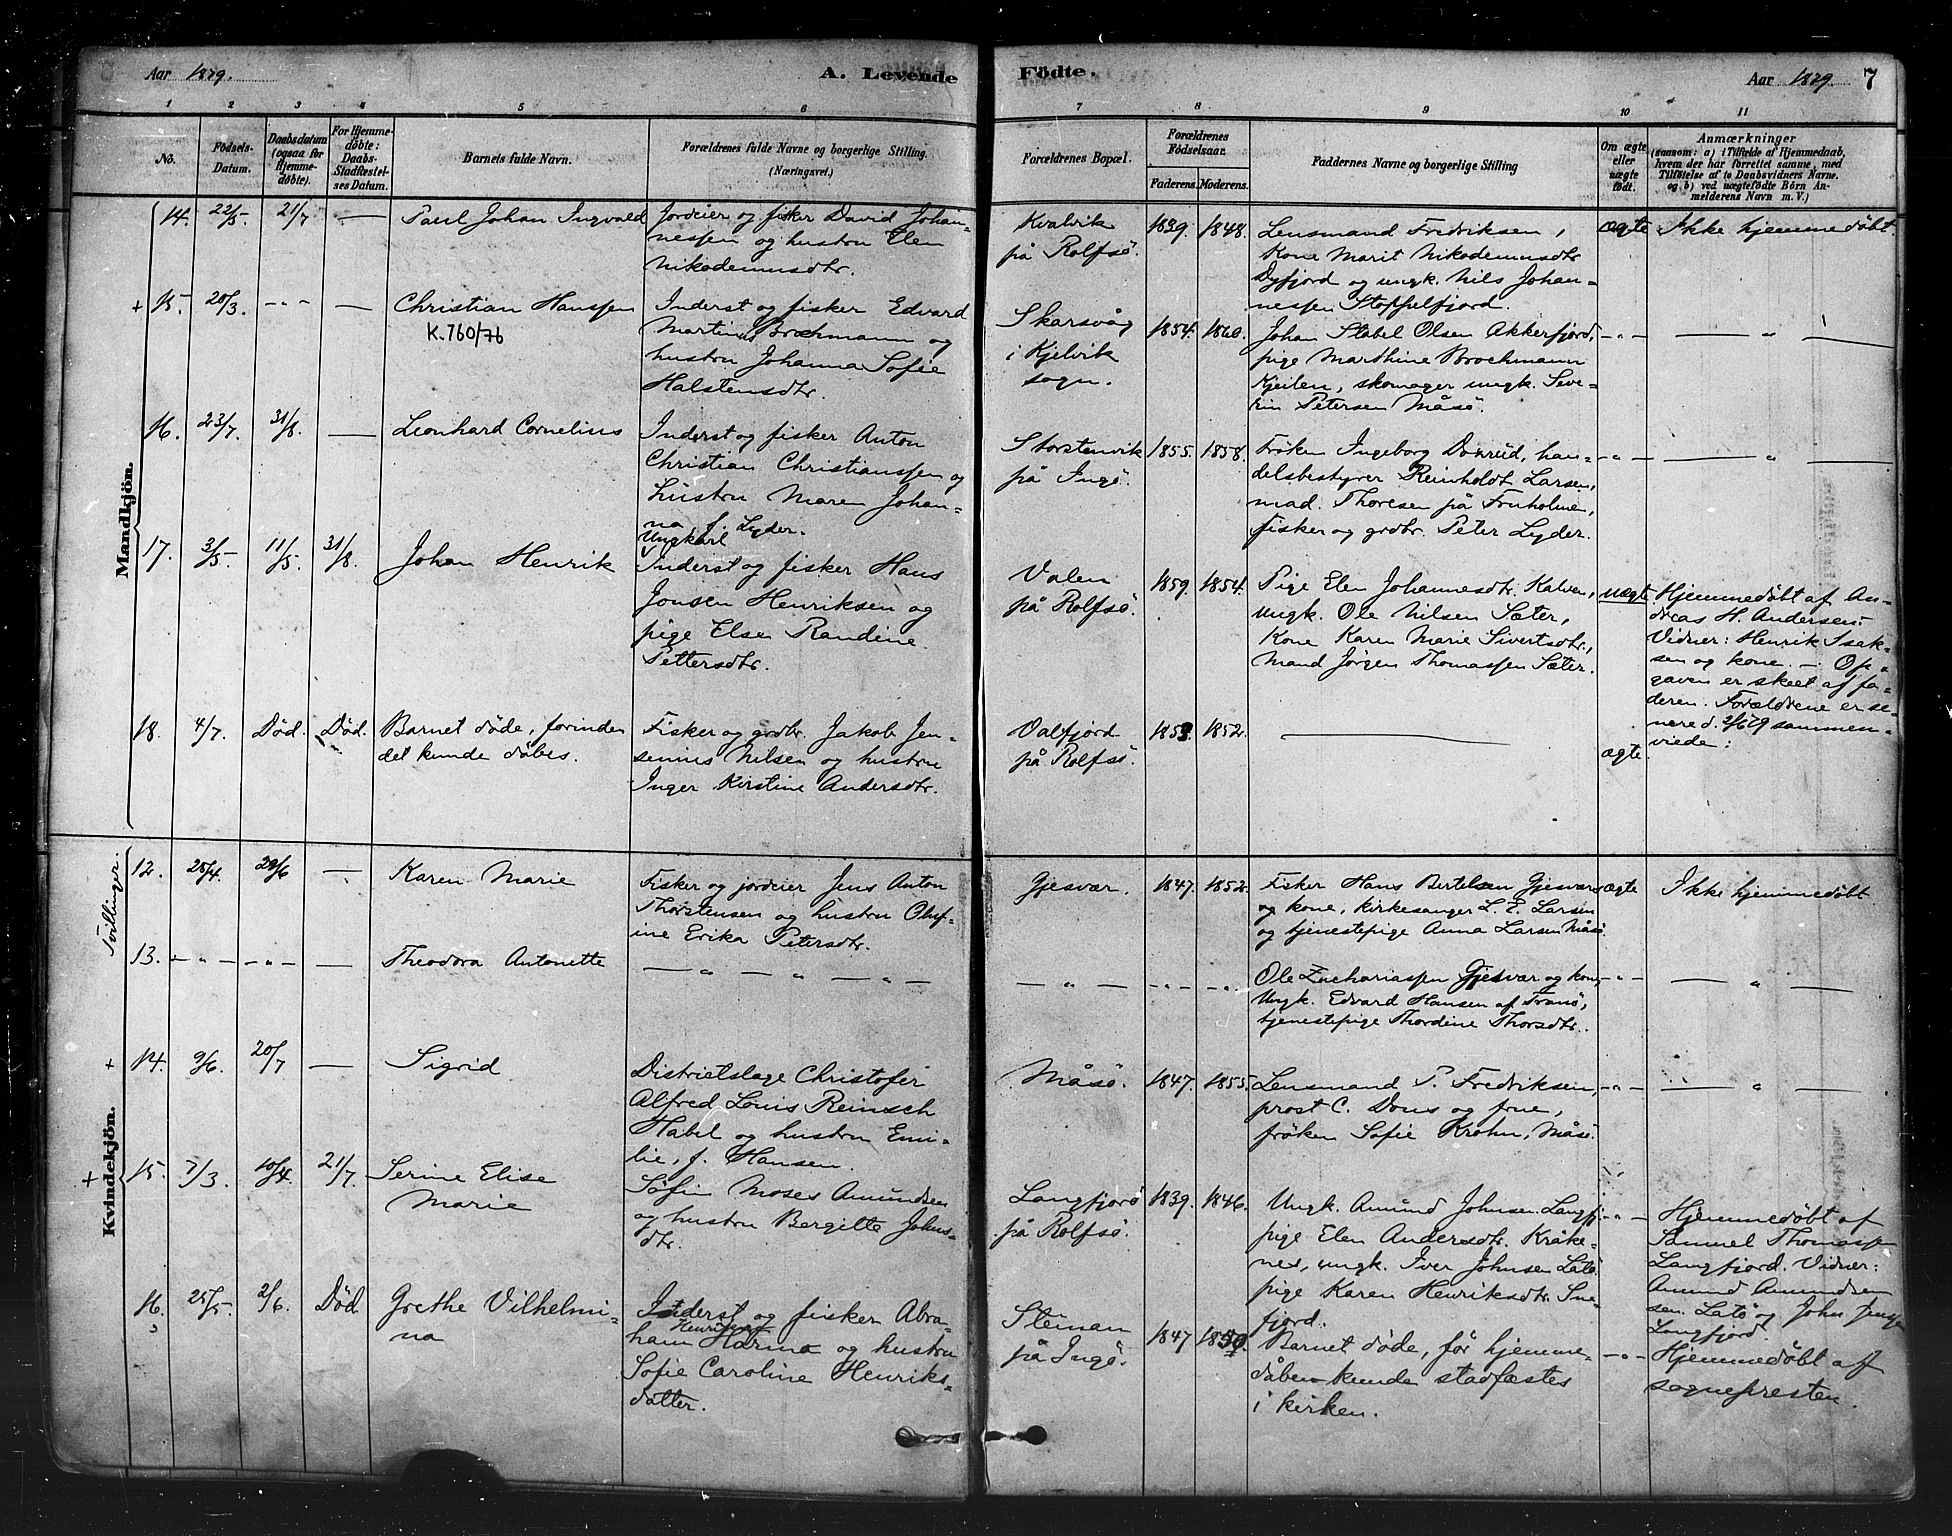 Aar 1879.
A. Levende
Fødte.
Aar 1879. 7
1 2 3 4 5 6 7 8 9 10 11
No.
Fødsels-
Datum.
Daabsdatum
(ogsaa for
Hjemme-
døbte).
For Hjemme-
døbte:
Daabs-
Stadfæstel-
ses Datum.
Barnets fulde Navn.
Forældrenes fulde Navne og borgerlige Stilling.
(Næringsvei.)
Forældrenes Bopæl.
Forældrenes
Fødselsaar.
Faderens. Moderens.
Faddernes Navne og borgerlige Stilling
Om ægte
eller
uægte
født.
Anmærkninger
(saasom: a) i Tilfælde af Hjemmedaab,
hvem der har forrettet samme, med
Tilføielse af to Daabsvidners Navne.
og b) ved uægtefødte Børn An-
melderens Navn m. V.)
Mandkjön.
14. 22/5. 21/7 — Paul Johan Ingvald
Jordeier og fisker David Johan-
nessen og hustru Elen
Nikodemusdtr.
Kvalvik
på Rolfsö.
1839. 1848.
Lensmand Fredriksen,
Kone Marit Nikodemusdtr
Dyfjord og ungk. Nils Johan-
nessen Stoppelfjord.
ægte Ikke hjemmedöbt.
+ 15. 20/3. - " - — Christian Hanssen
K. 760/76
Inderst og fisker Edvard
Martinus Brochmann og
hustru Johanna Sofie
Halstensdtr.
Skarsvåg
i Kjelvik
sogn.
1854. 1860.
Johan Stabel Olsen Akkerfjord,
pige Marthine Brochmann
Kjeilen, skomager ungk. Seve-
rin Petersen Måsö.
- " - — " —
16. 23/7. 31/8. — Leonhard Cornelius
Inderst og fisker Anton
Christian Christianssen og
hustru Maren Johan-
na, f. Lyder.
Storstenvik
på Ingö.
1855. 1858.
Fröken Ingeborg Doxrud, han-
delsbestyrer Reinholdt Larsen,
mad. Thoresen på Fruholmen,
fisker og grdbr. Peter Lyder.
- " - — " —
17. 3/5. 11/5. 31/8. Johan Henrik
Ungkarl
Inderst og fisker Hans
Jonsen Henriksen og
pige Elsen Randine
Pettersdtr.
Valen
på Rolfsö.
1859. 1854.
Pige Elen Johannesdtr. Kalven,
ungk. Ole Nilsen Sæter,
Kone Karen Marie Sivertsdtr.,
Mand Jörgen Thomassen Sæter.
uægte
Hjemmedöbt af An-
dreas H. Andersen.
Vidner: Henrik Isak-
sen og kone. — Op-
gaven er skeet af fa-
deren. Forældrene er se-
nere d. 2/6 79 sammen-
viede.
18. 4/7. Död. Död. Barnet döde, forinden
det kunde döbes.
Fisker og grdbr. Jakob Jen-
senius Nilsen og hustru
Inger Kirstine Andersdtr.
Valfjord
på Rolfsö.
1853 1852.
—
ægte.
Kvindekjön.
Tvillinger.
12. 25/4. 29/6 — Karen Marie
Fisker og jordeier Jens Anton
Thorstensen og hustru Oluf-
ine Erika Petersdtr.
Gjesvær.
1847. 1852.
Fisker Hans Bertelsen Gjesvær
og kone, kirkesanger L. E. Larsen
og tjenestepige Anna Larsen Måsö.
ægte Ikke hjemmedöbt
13. - " - - " - — Theodora Antonette
— " — " — " —
— " — - " - - " -
Ole Zachariassen Gjesvær og kone,
Ungk. Edvard Hansen af Tranö,
tjenestepige Thordine Thorsdtr.
- " - — " —
+ 14. 9/6. 20/7 — Sigrid
Districtslæge Christofer
Alfred Louis Reinsch
Habel og hustru Emi-
lie, f. Hansen.
Måsö.
1847. 1855.
Lensmand P. Fredriksen,
prost C. Dons og frue,
fröken Sofie Krohn, Måsö.
- " - — " —
+ 15. 7/3. 10/4 21/7. Serine Elise
Marie
Söfin Moses Amundsen
og hustru Bergitte Johns-
dtr.
Langfjord
på Rolfsö.
1839. 1846.
Ungk. Amund Johnsen Langfj.
pige Elen Andersdtr. Kråke-
nes, ungk. Iver Johnsen Latö
pige Karen Henriksdtr. Sne-
fjord.
- " -
Hjemmedöbt af
Samuel Thomassen
Langfjord. Vidner:
Amund Amundsen
sen. Latö og John Jensen
Langfjord.
16. 25/5. 2/6. Död. Grethe Vilhelmi-
na
Inderst og fisker Abra-
ham Harino og hustru
Sofie Caroline Henriks-
datter.
Steinan
på Ingö.
1847 1850.
Barnet döde, för hjemme-
dåben kunde stadfæstes
i kirken.
- " -
Hjemmedöbt af
sognepresten.